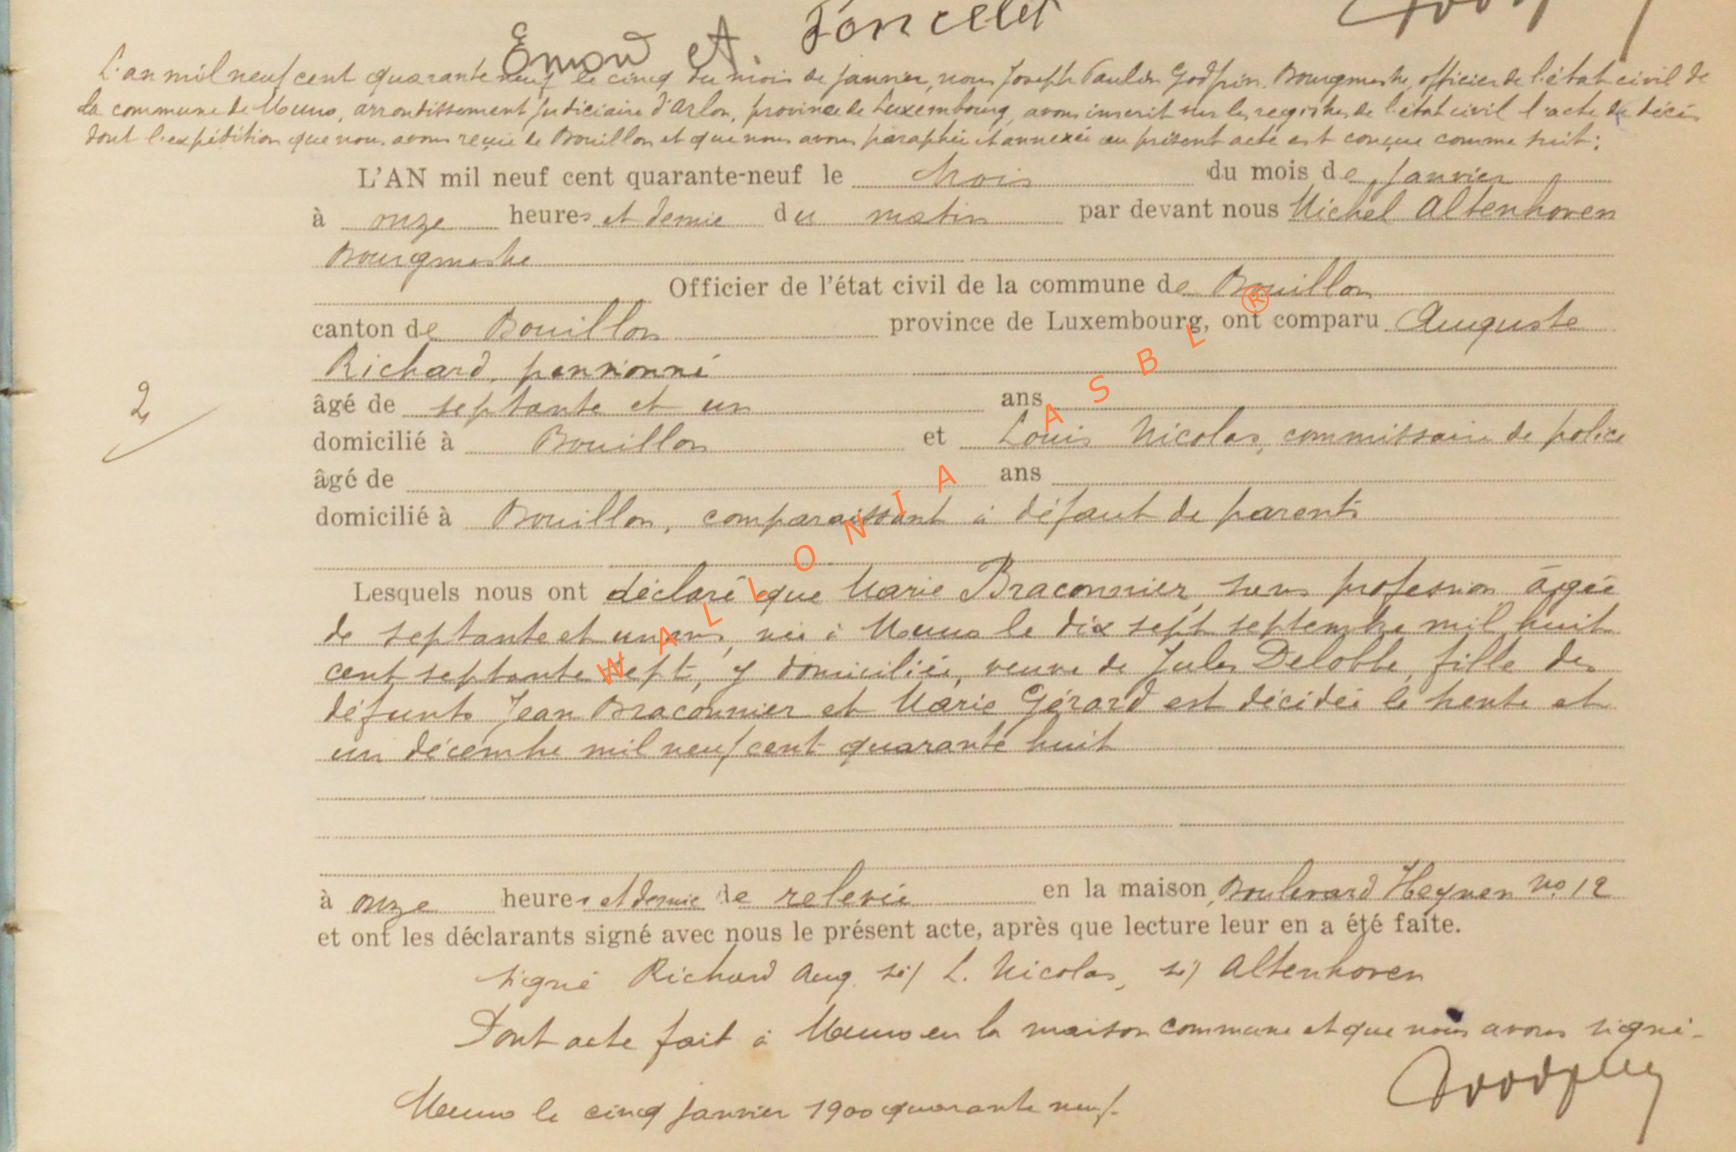 Emond A. Poncelet
L'an mil neuf cent quarante neuf le cinq du mois de janvier, nous Joseph Paulin Godfrin, Bourgmestre, officier de l'état civil de
la commune de Muno, arrondissement judiciaire d'Arlon, province de Luxembourg, avons inscrit sur les registres de l'état civil l'acte de décès
dont l'expédition que nous avons reçue de Bouillon et que nous avons paraphée et annexée au présent acte est conçue comme suit :
L'AN mil neuf cent quarante-neuf le trois du mois de janvier
à onze heures et demie du matin par devant nous Michel Altenhoven
Bourgmestre
Officier de l'état civil de la commune de Bouillon
canton de Bouillon province de Luxembourg, ont comparu Auguste
Richard, pensionné
âgé de septante et un ans
2
domicilié à Bouillon et Louis Nicolas, commissaire de police
âgé de ans
domicilié à Bouillon, comparaissant à défaut de parents
Lesquels nous ont déclaré que Marie Braconnier, sans profession âgée
de septante et un ans, née à Muno le dix sept septembre mil huit
cent septante sept, y domiciliée, veuve de Jules Delobbe, fille des
défunts Jean Braconnier et Marie Gérard est décédée le trente et
un décembre mil neuf cent quarante huit
à onze heures et demie de relevée en la maison, Boulevard Heynen no 12
et ont les déclarants signé avec nous le présent acte, après que lecture leur en a été faite.
signé Richard Aug. sé/ L. Nicolas, sé/ Altenhoven
Dont acte fait à Muno en la maison commune et que nous avons signé.
Muno le cinq janvier 1900 quarante neuf.
WALLONIA ASBL ®